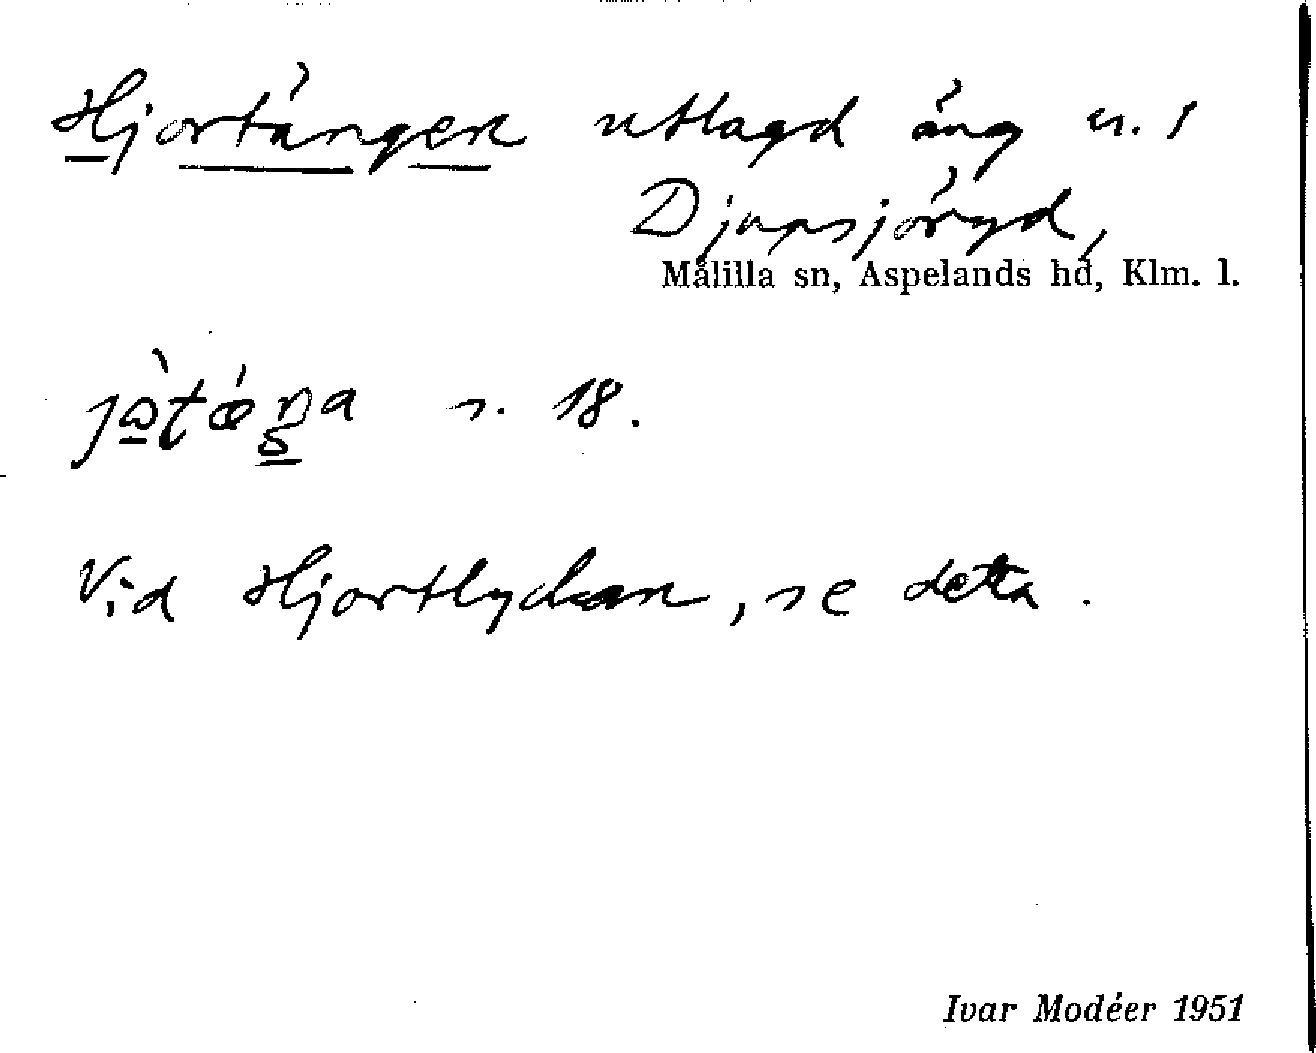 Hjortängen utlagd äng n. 1
Djupsjöryd,
Målilla sn, Aspelands hd, Klm. l.
s. 18.
Vid Hjortlyckan, se detta.
Ivar Modéer 1951